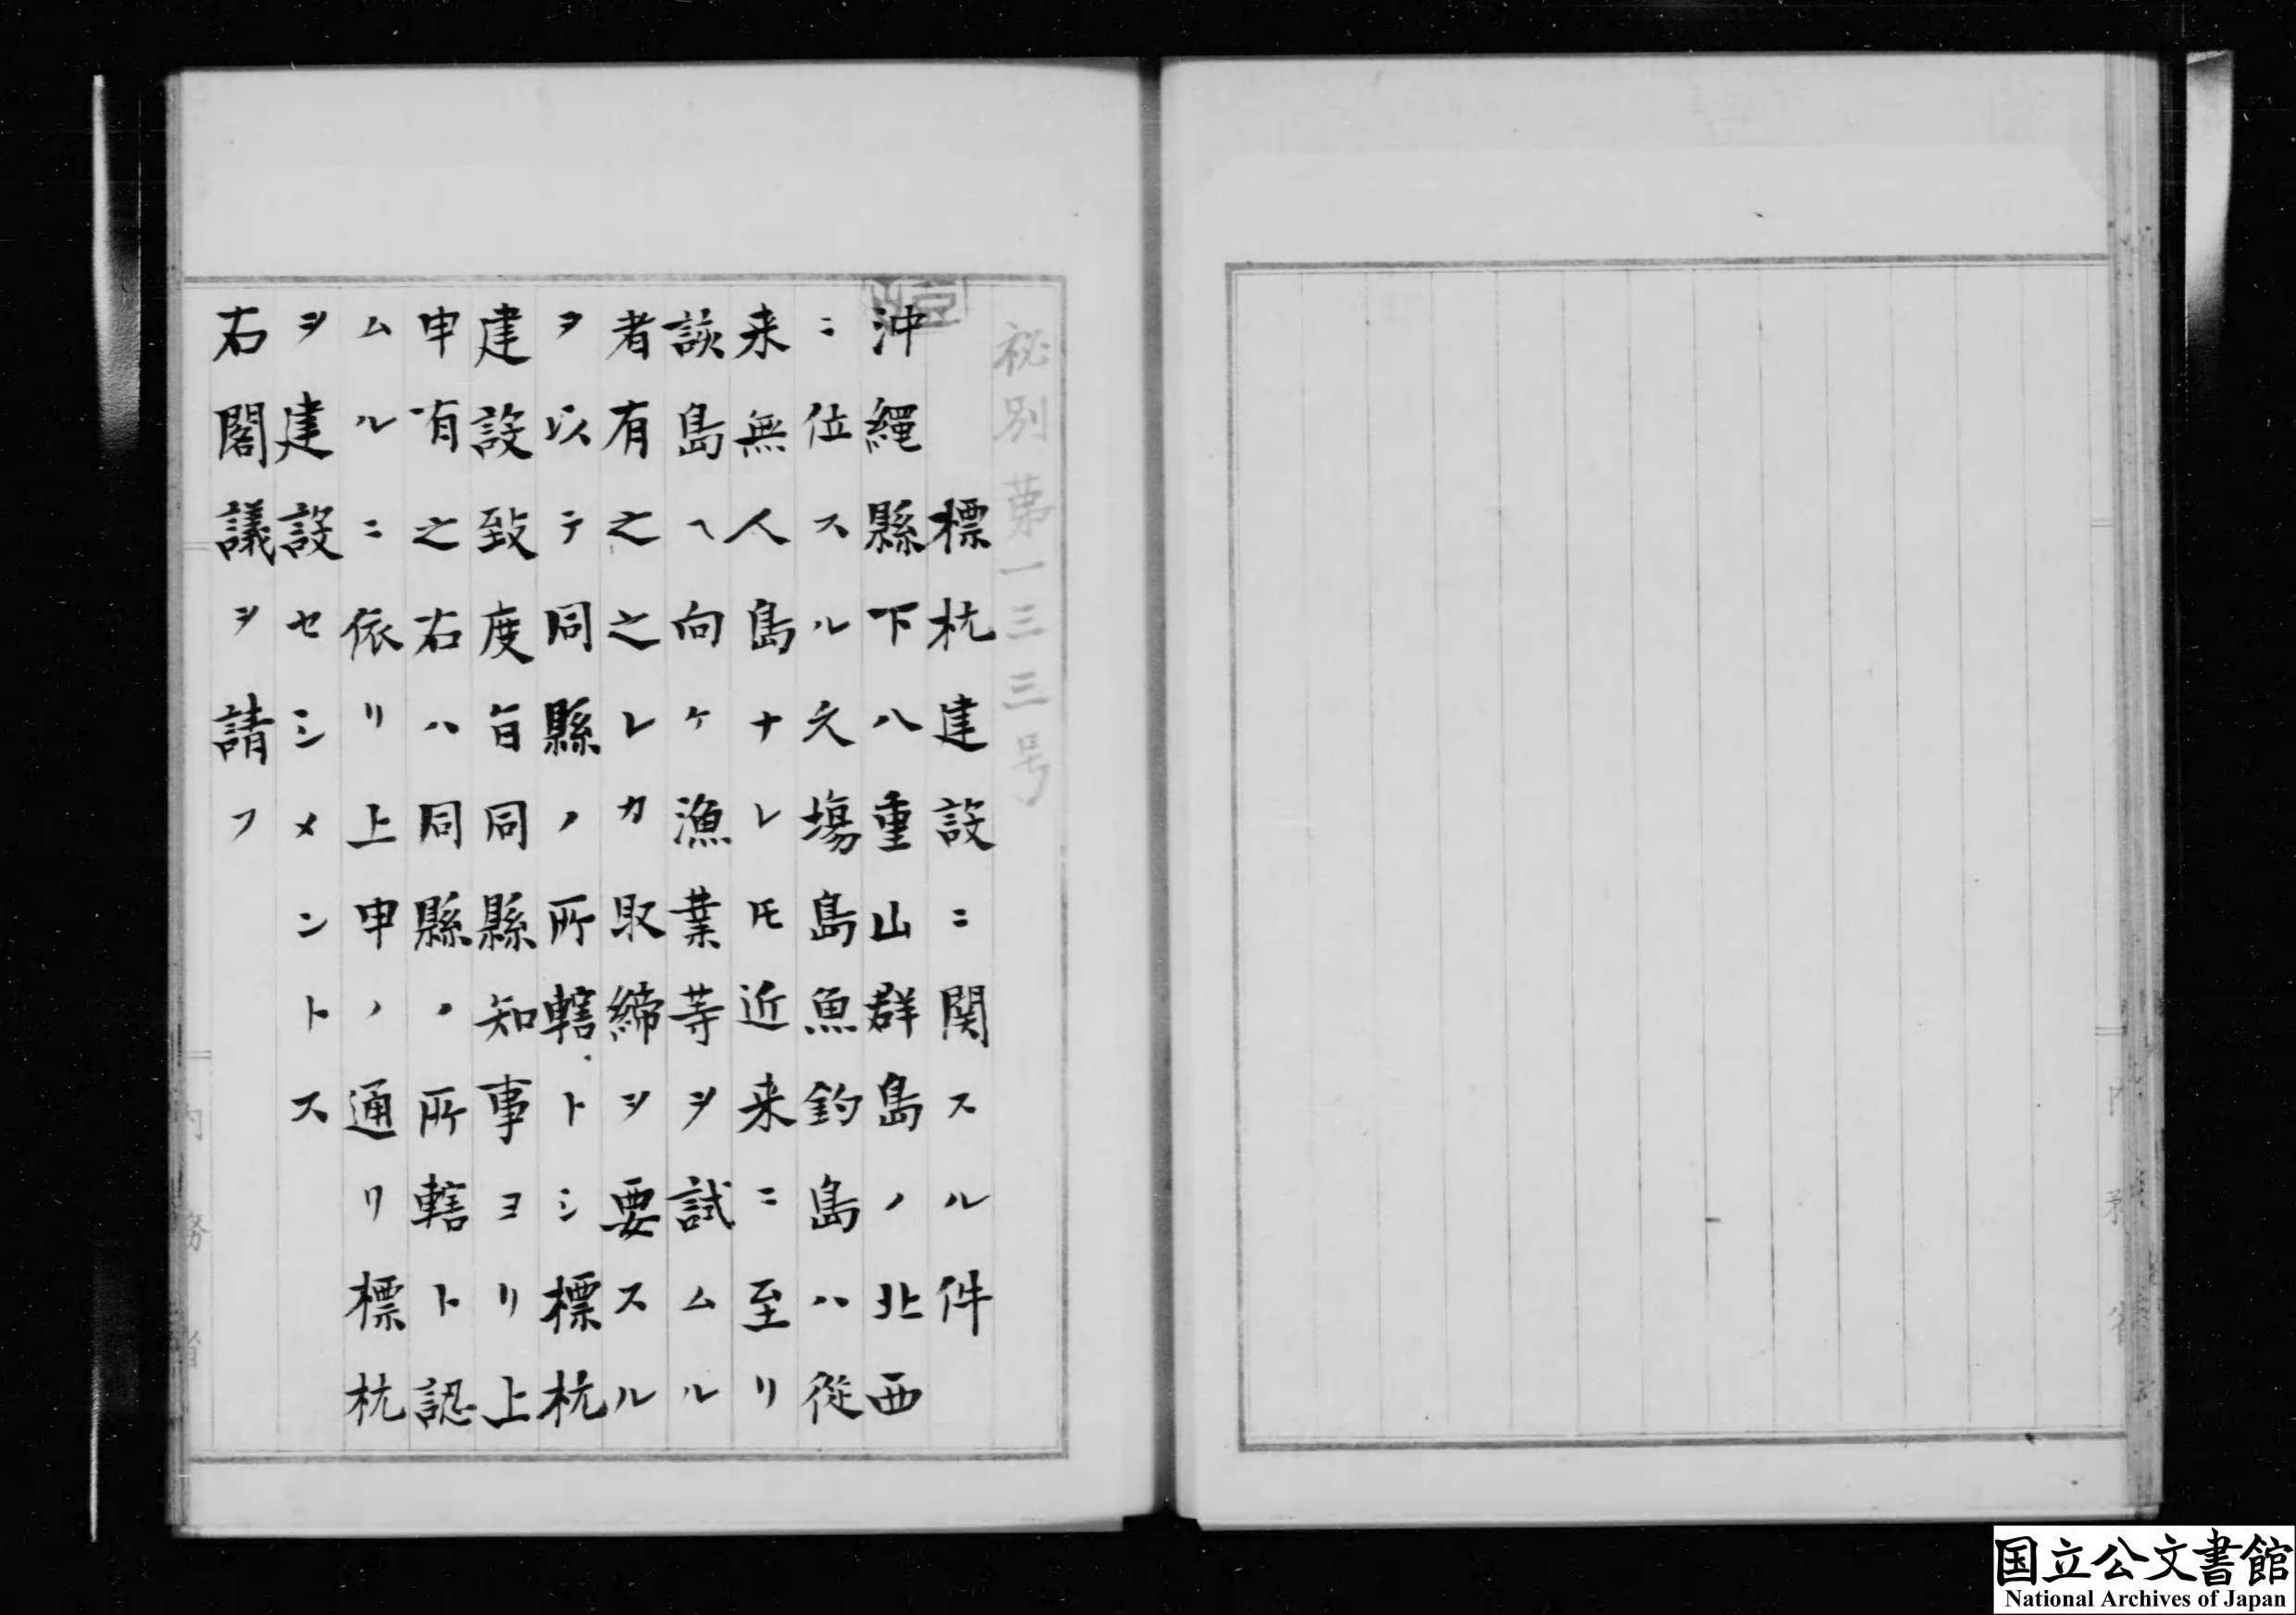 秘別第一三三号
標杭建設ニ関スル件
沖縄縣下八重山群島ノ北西
ニ位スル久塲島魚釣島ハ従
来無人島ナレ𪜈近来ニ至リ
該島ヘ向ケ漁業等ヲ試ムル
者有之之レカ取締ヲ要スル
ヲ以テ同縣ノ所轄トシ標杭
建設致度旨同縣知事ヨリ上
申有之右ハ同縣ノ所轄ト認
ムルニ依リ上申ノ通リ標杭
ヲ建設セシメントス
右閣議ヲ請フ
内務省
内務省
国立公文書館
National Archives of Japan